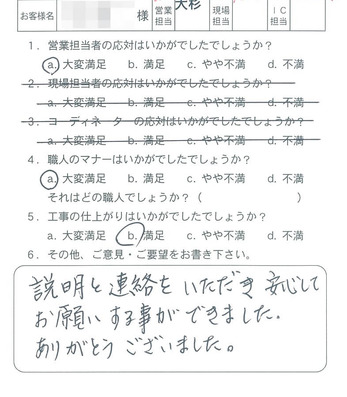 お客様名 様 営業担当 大杉 現場担当 IC担当
1. 営業担当者の応対はいかがでしたでしょうか?
a. 大変満足 b. 満足 c. やや不満 d. 不満
2. 現場担当者の応対はいかがでしたでしょうか?
a. 大変満足 b. 満足 c. やや不満 d. 不満
3. コーディネーターの応対はいかがでしたでしょうか?
a. 大変満足 b. 満足 c. やや不満 d. 不満
4. 職人のマナーはいかがでしたでしょうか?
a. 大変満足 b. 満足 c. やや不満 d. 不満
それはどの職人でしょうか?( )
5. 工事の仕上がりはいかがでしたでしょうか?
a. 大変満足 b. 満足 c. やや不満 d. 不満
6. その他、ご意見・ご要望をお書き下さい。
説明と連絡をいただき安心して
お願いする事ができました.
ありがとうございました。